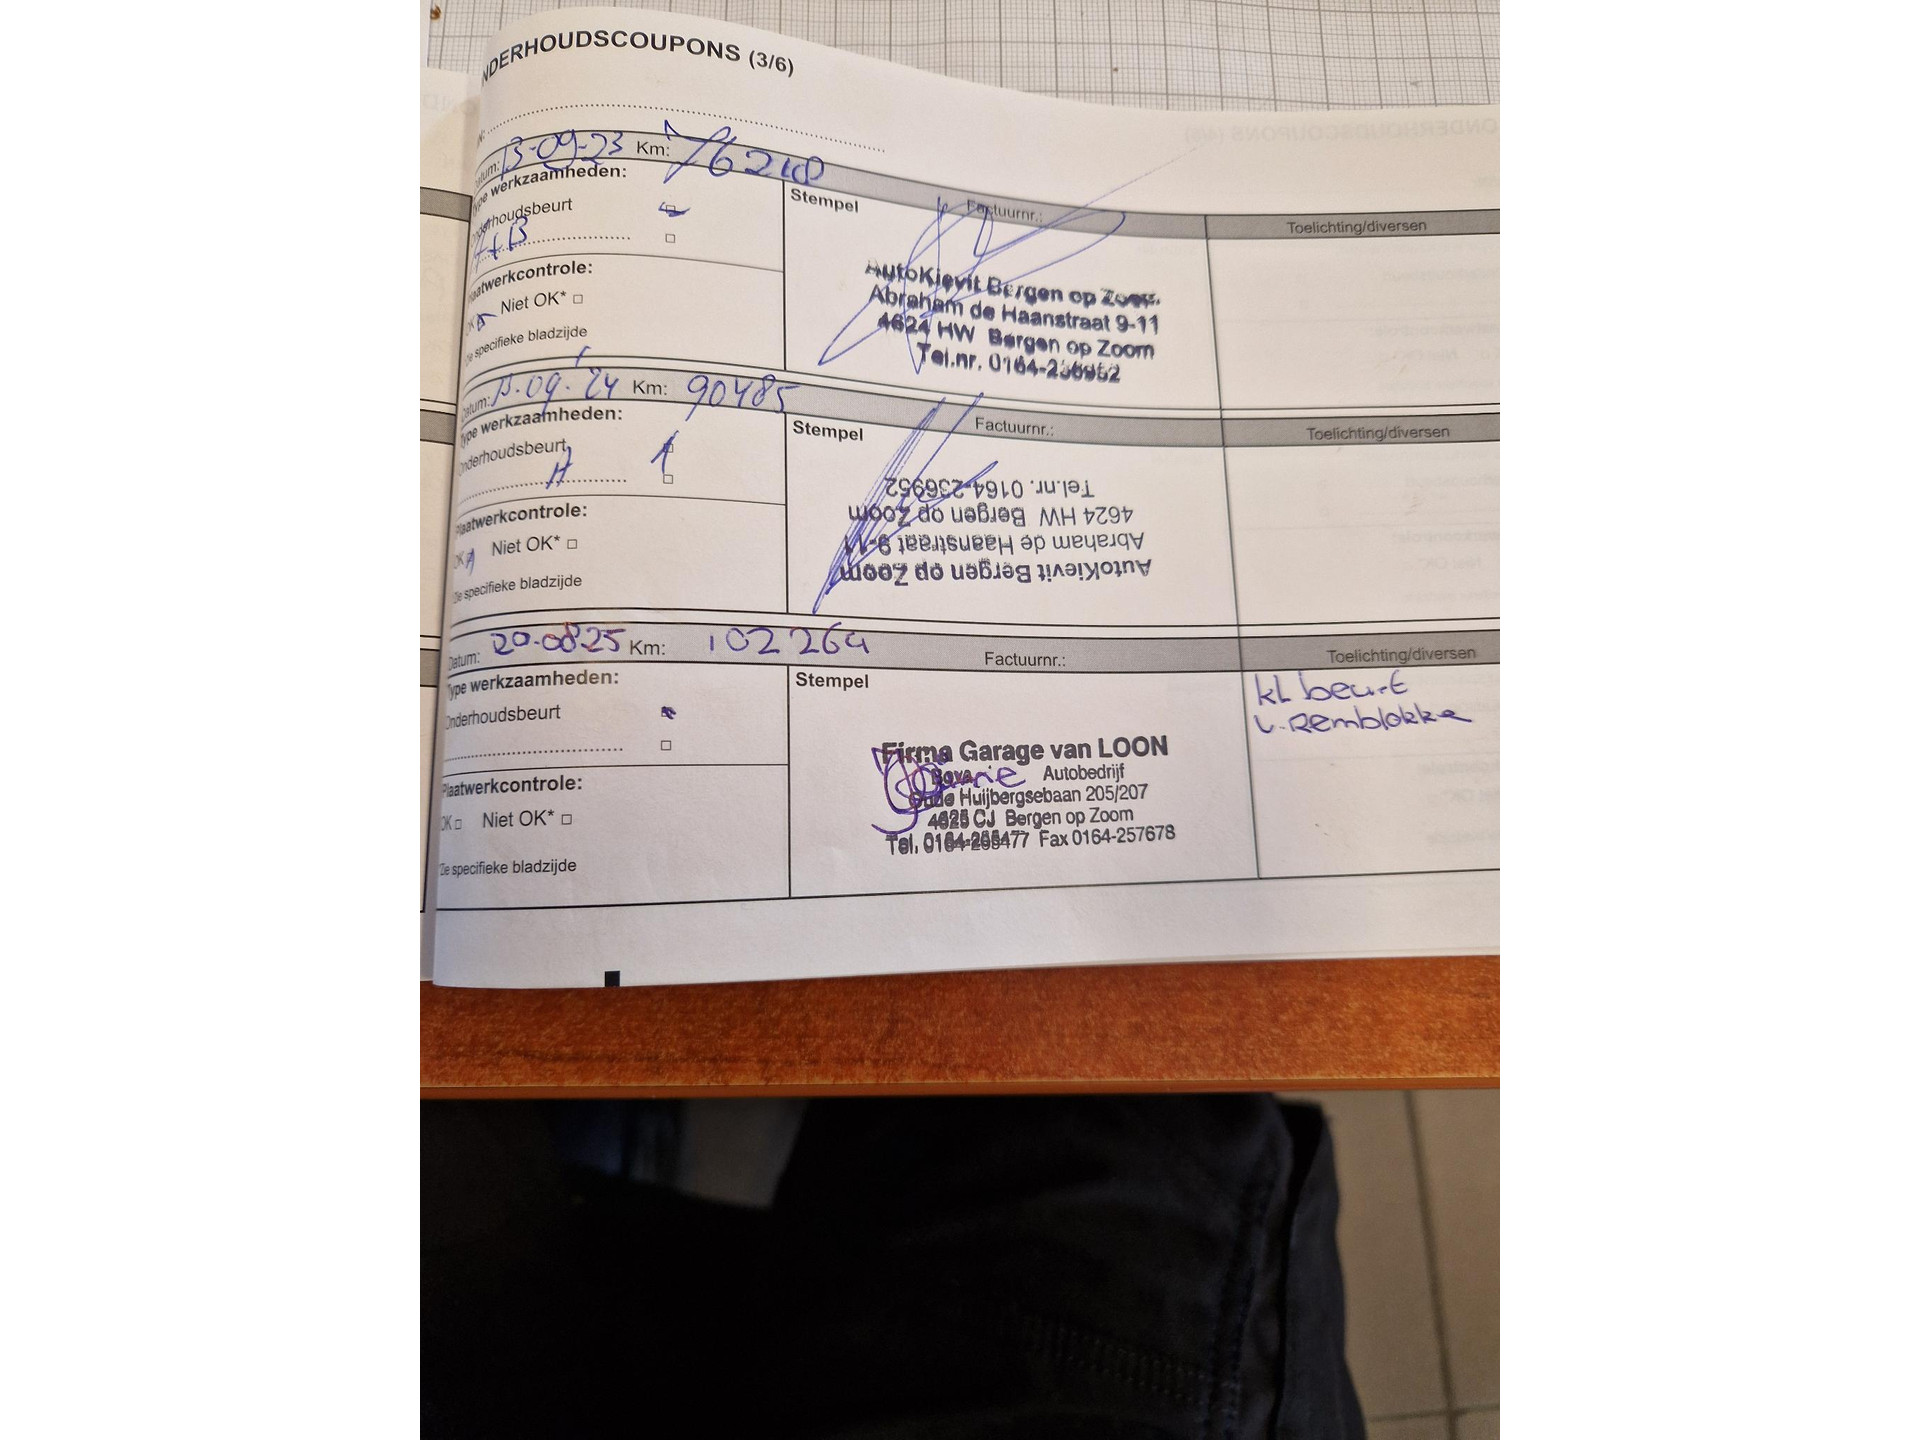 NDERHOUDSCOUPONS (3/6)
N:
Datum: 13-09-23 Km: 76210
Type werkzaamheden:
Onderhoudsbeurt
A+B
Plaatwerkcontrole:
OK Niet OK*
*Zie specifieke bladzijde
Stempel Factuurnr.: Toelichting/diversen
AutoKievit Bergen op Zoom
Abraham de Haanstraat 9-11
4624 HW Bergen op Zoom
Tel.nr. 0164-236952
Datum: 13-09-'24 Km: 90485
Type werkzaamheden:
Onderhoudsbeurt
A
Plaatwerkcontrole:
OK Niet OK*
*Zie specifieke bladzijde
Stempel Factuurnr.: Toelichting/diversen
AutoKievit Bergen op Zoom
Abraham de Haanstraat 9-11
4624 HW Bergen op Zoom
Tel.nr. 0164-236952
Datum: 20-08-25 Km: 102264
Type werkzaamheden:
Onderhoudsbeurt
Plaatwerkcontrole:
OK Niet OK*
*Zie specifieke bladzijde
Stempel Factuurnr.: Toelichting/diversen
kl beurt
v. Remblokke
Firma Garage van LOON
Bova Autobedrijf
Oude Huijbergsebaan 205/207
4625 CJ Bergen op Zoom
Tel. Fax 0164-257678